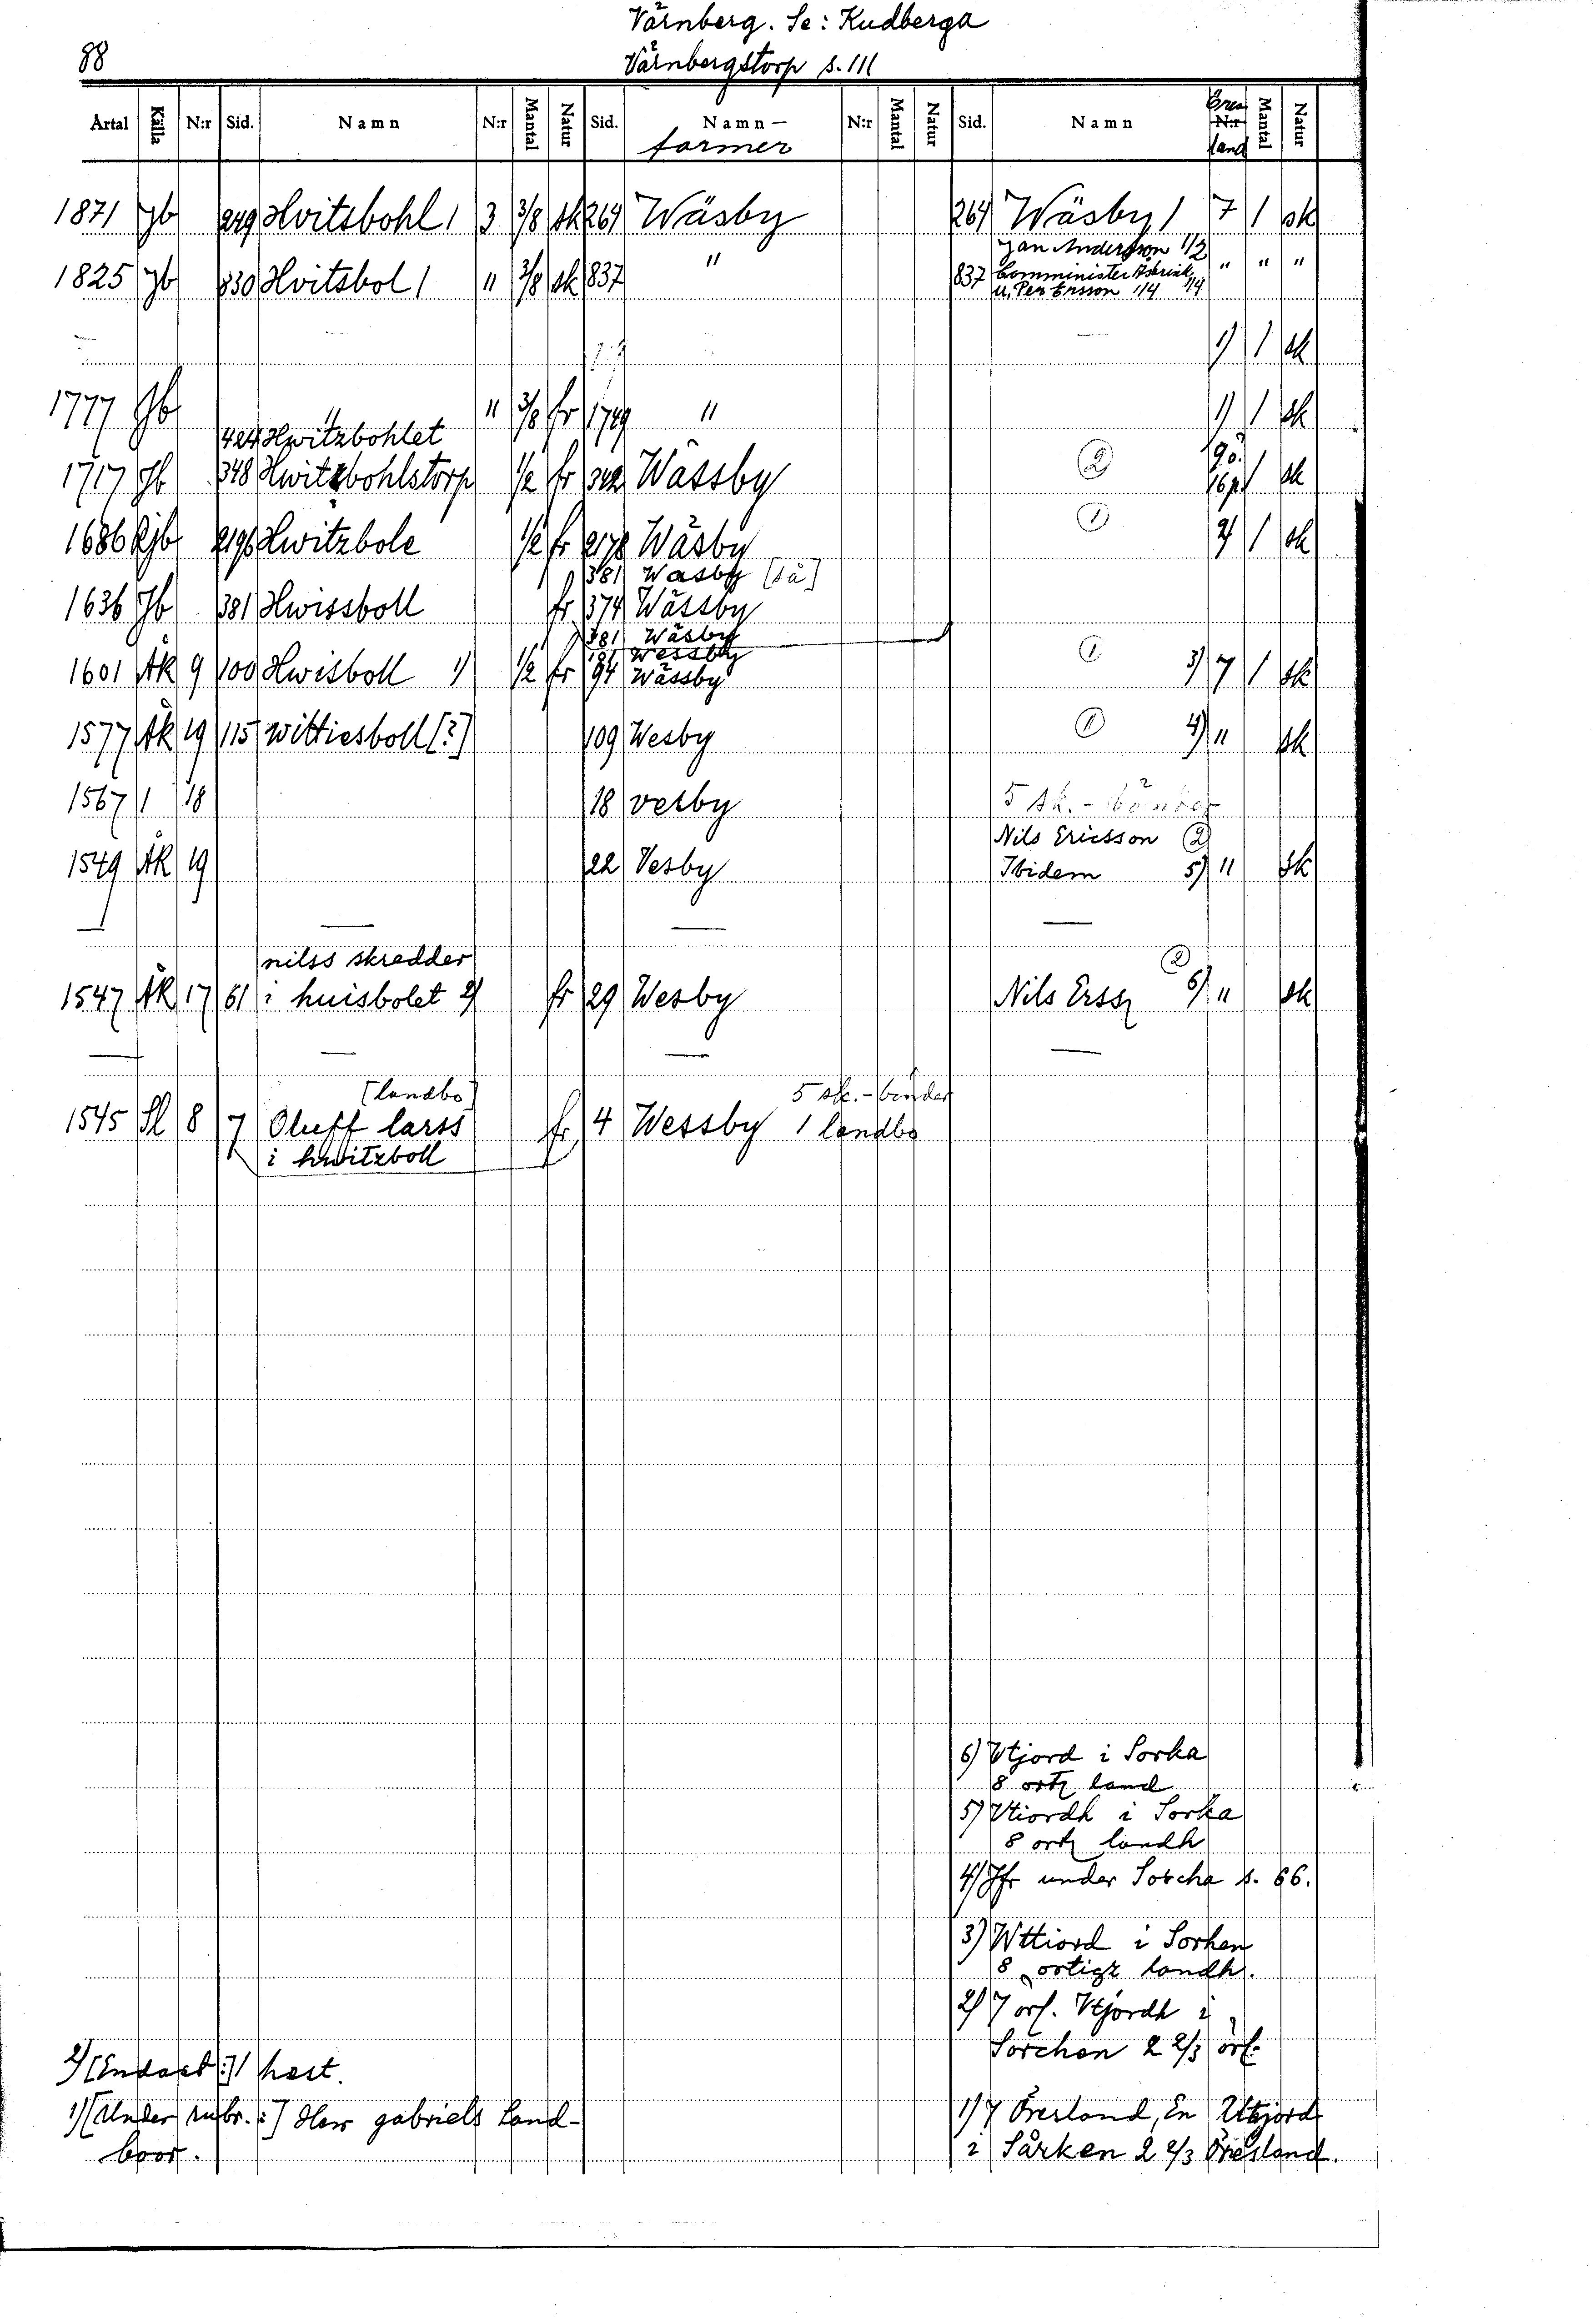 Värnberg. Se: Kudberga
88
Värnbergstorp s. 111
Årtal Källa N:r Sid. Namn N:r Mantal Natur Sid. Namn- N:r Mantal Natur Sid. Namn Öres N:r Mantal Natur
former land
1871 Jb 249 Hvitsbohl 1 3 3/8 sk 264 Wäsby 264 Wäsby 1 7 1 sk
Jan Andersson 1/2
1825 Jb 830 Hvitsbol 1 " 3/8 sk 837 " 837 Comminister 1/4 " " "
u. Per Ersson 1/4
1) 1 sk
1777 Jb " 3/8 fr 1749 " 1) 1 sk
424 Hwitzbohlet
1717 Jb 348 Hwitzbohlstorp 1/2 fr 342 Wässby 2 1 sk
1686 Kjb 2196 Hwitzbole 1/2 fr 2178 Wäsby 1 2) 1 sk
381 Wasby [så]
1636 Jb 381 Hwissboll fr 374 Wässby
381 Wäsby
Wessby
1601 Äk 9 100 Hwisboll 1) 1/2 fr 94 Wässby 1 3) 7 1 sk
1577 Äk 19 115 wittiesboll [?] 109 Wesby 1 4) " sk
1567 1 18 18 vesby 5 sk. - bönder
Nils Ericsson 2
1549 Äk 19 22 Vesby Ibidem 5) " sk
nilss skredder
1547 Äk 17 61 i huisbolet 2) fr 29 Wesby Nils Erss 2 6) " sk
[landbo] 5 sk. - bönder
1545 Sl 8 7 Oluff larss fr 4 Wessby 1 landbo
i hwitzboll
6) Vtjord i Sorka
8 ort land
5) Vtiordh i Sorka
8 ort landh
4) Jfr under Sorcha s. 66.
3) Wttiord i Sorken
8 ortigz landh.
2) 7 örl. Vtjordh i
Sorchen 2 2/3 örl.
2) [Endast:] 1 hest.
1) [Under rubr.:] Her gabriels Land-
boor.
1) 7 Öresland, En Utjord
i Sårken 2 2/3 Öresland.